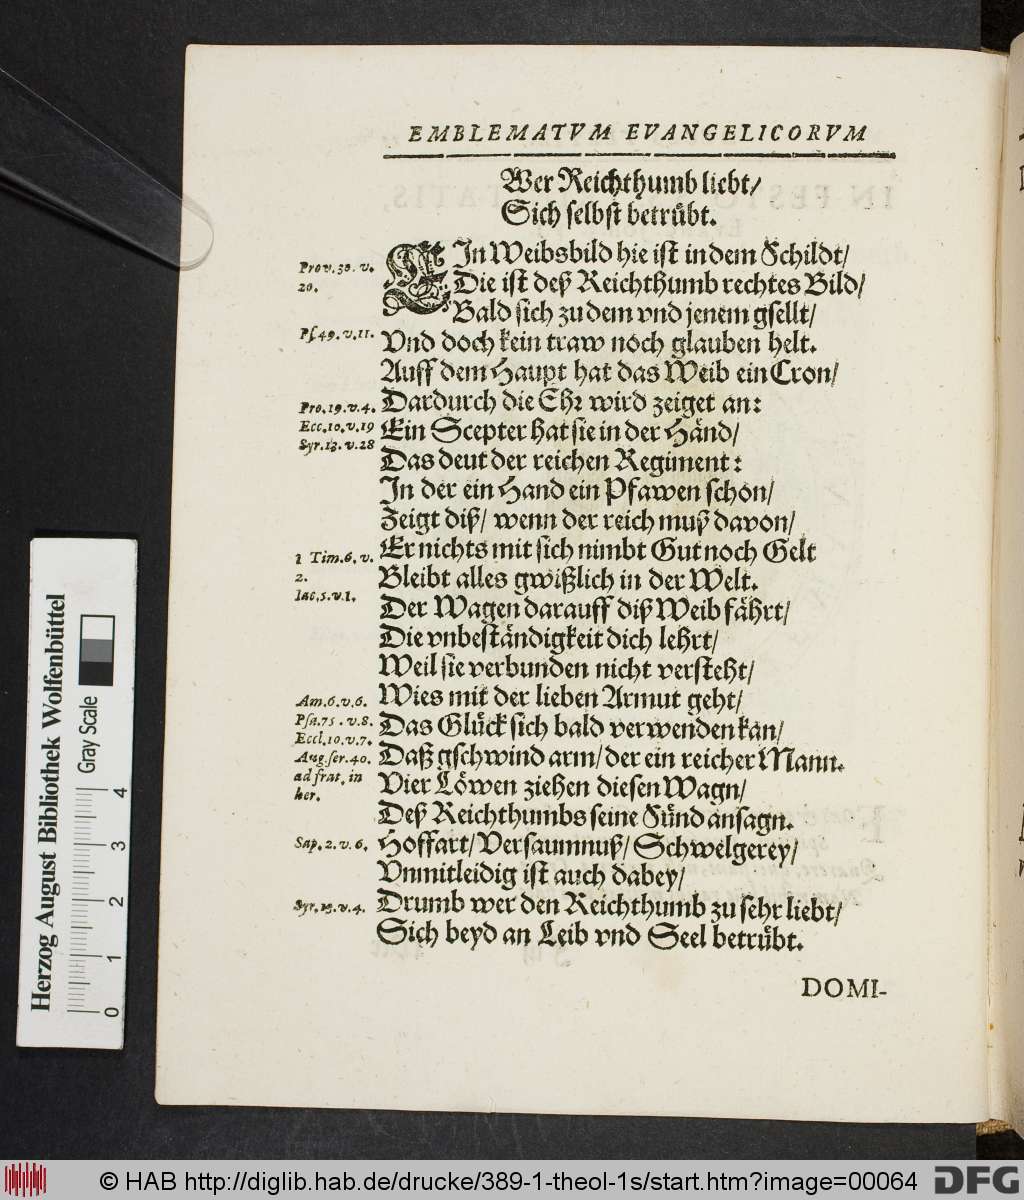 EMBLEMATVM EVANGELICORVM
Wer Reichthumb liebt/
Sich selbst betrübt.
EIn Weibsbild hie ist in dem Schildt/
Die ist deß Reichthumb rechtes Bild/
Bald sich zu dem vnd jenem gsellt/
Vnd doch kein traw noch glauben helt.
Auff dem Haupt hat das Weib ein Cron/
Dardurch die Ehr wird zeiget an:
Ein Scepter hat sie in der Händ/
Das deut der reichen Regiment:
In der ein Hand ein Pfawen schon/
Zeigt diß/ wenn der reich muß davon/
Er nichts mit sich nimbt Gut noch Gelt
Bleibt alles gwißlich in der Welt.
Der Wagen darauff diß Weib fährt/
Die vnbeständigkeit dich lehrt/
Weil sie verbunden nicht versteht/
Wies mit der lieben Armut geht/
Das Glück sich bald verwenden kan/
Daß gschwind arm/ der ein reicher Mann.
Vier Löwen ziehen diesen Wagn/
Deß Reichthumbs seine Sünd ansagn.
Hoffart/ Versaumnuß/ Schwelgerey/
Vnmitleidig ist auch dabey/
Drumb wer den Reichthumb zu sehr liebt/
Sich beyd an Leib vnd Seel betrübt.
Prov. 30. v.
20.
Ps. 49. v. 11.
Pro. 19. v. 4.
Ecc. 10. v. 19
Syr. 13. v. 28
1 Tim. 6. v.
2.
Iac. 5. v. 1.
Am. 6. v. 6.
Psa. 75. v. 8.
Eccl. 10. v. 7.
Aug. ser. 40.
ad frat. in
her.
Sap. 2. v. 6.
Syr. 13. v. 4.
DOMI-
Herzog August Bibliothek Wolfenbüttel
Gray Scale
0 1 2 3 4
© HAB http://diglib.hab.de/drucke/389-1-theol-1s/start.htm?image=00064
DFG